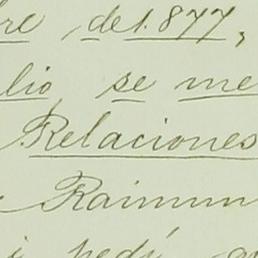 re, de 1.877,
lio se me
Relaciones
Raimun
i pedí